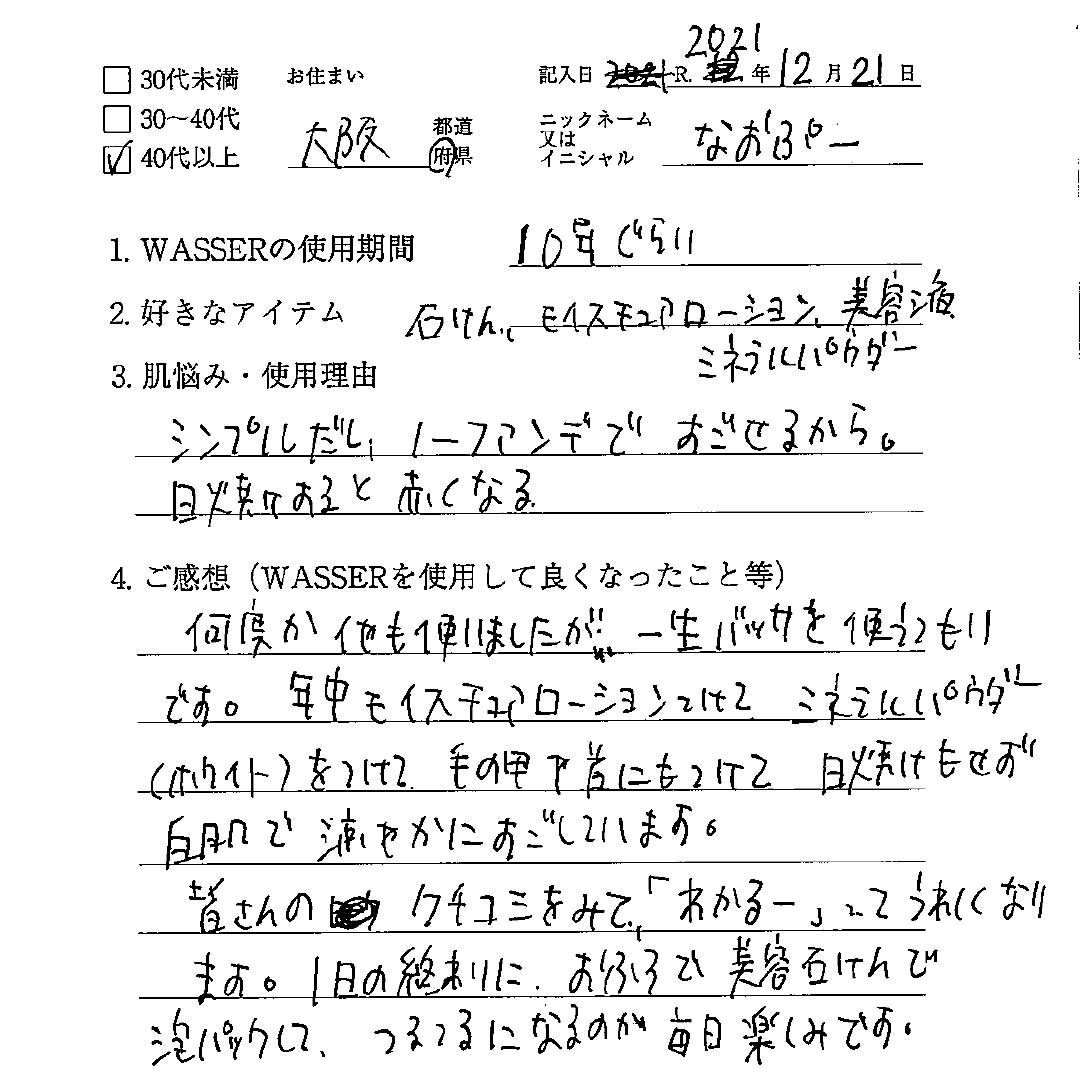 2021
□ 30代未満 お住まい 記入日 R. 年 12 月 21 日
□ 30～40代 大阪 都道府県 ニックネーム又はイニシャル なおぴー
☑ 40代以上
1. WASSERの使用期間 10年ぐらい
2. 好きなアイテム 石けん、モイスチュアローション、美容液
ミネラルパウダー
3. 肌悩み・使用理由
シンプルだし、ノーファンデですごせるから。
日焼けすると赤くなる
4. ご感想（WASSERを使用して良くなったこと等）
何度か他も使いましたが… 一生バッサを使うつもり
です。年中モイスチュアローションつけて ミネラルパウダー
（ホワイト）をつけて 手の甲や首にもつけて 日焼けもせず
白肌で 涼やかにすごしています。
皆さんの クチコミをみて、「わかるー」ってうれしくなり
ます。1日の終わりに、おふろで美容石けんで
泡パックして、つるつるになるのが毎日楽しみです。